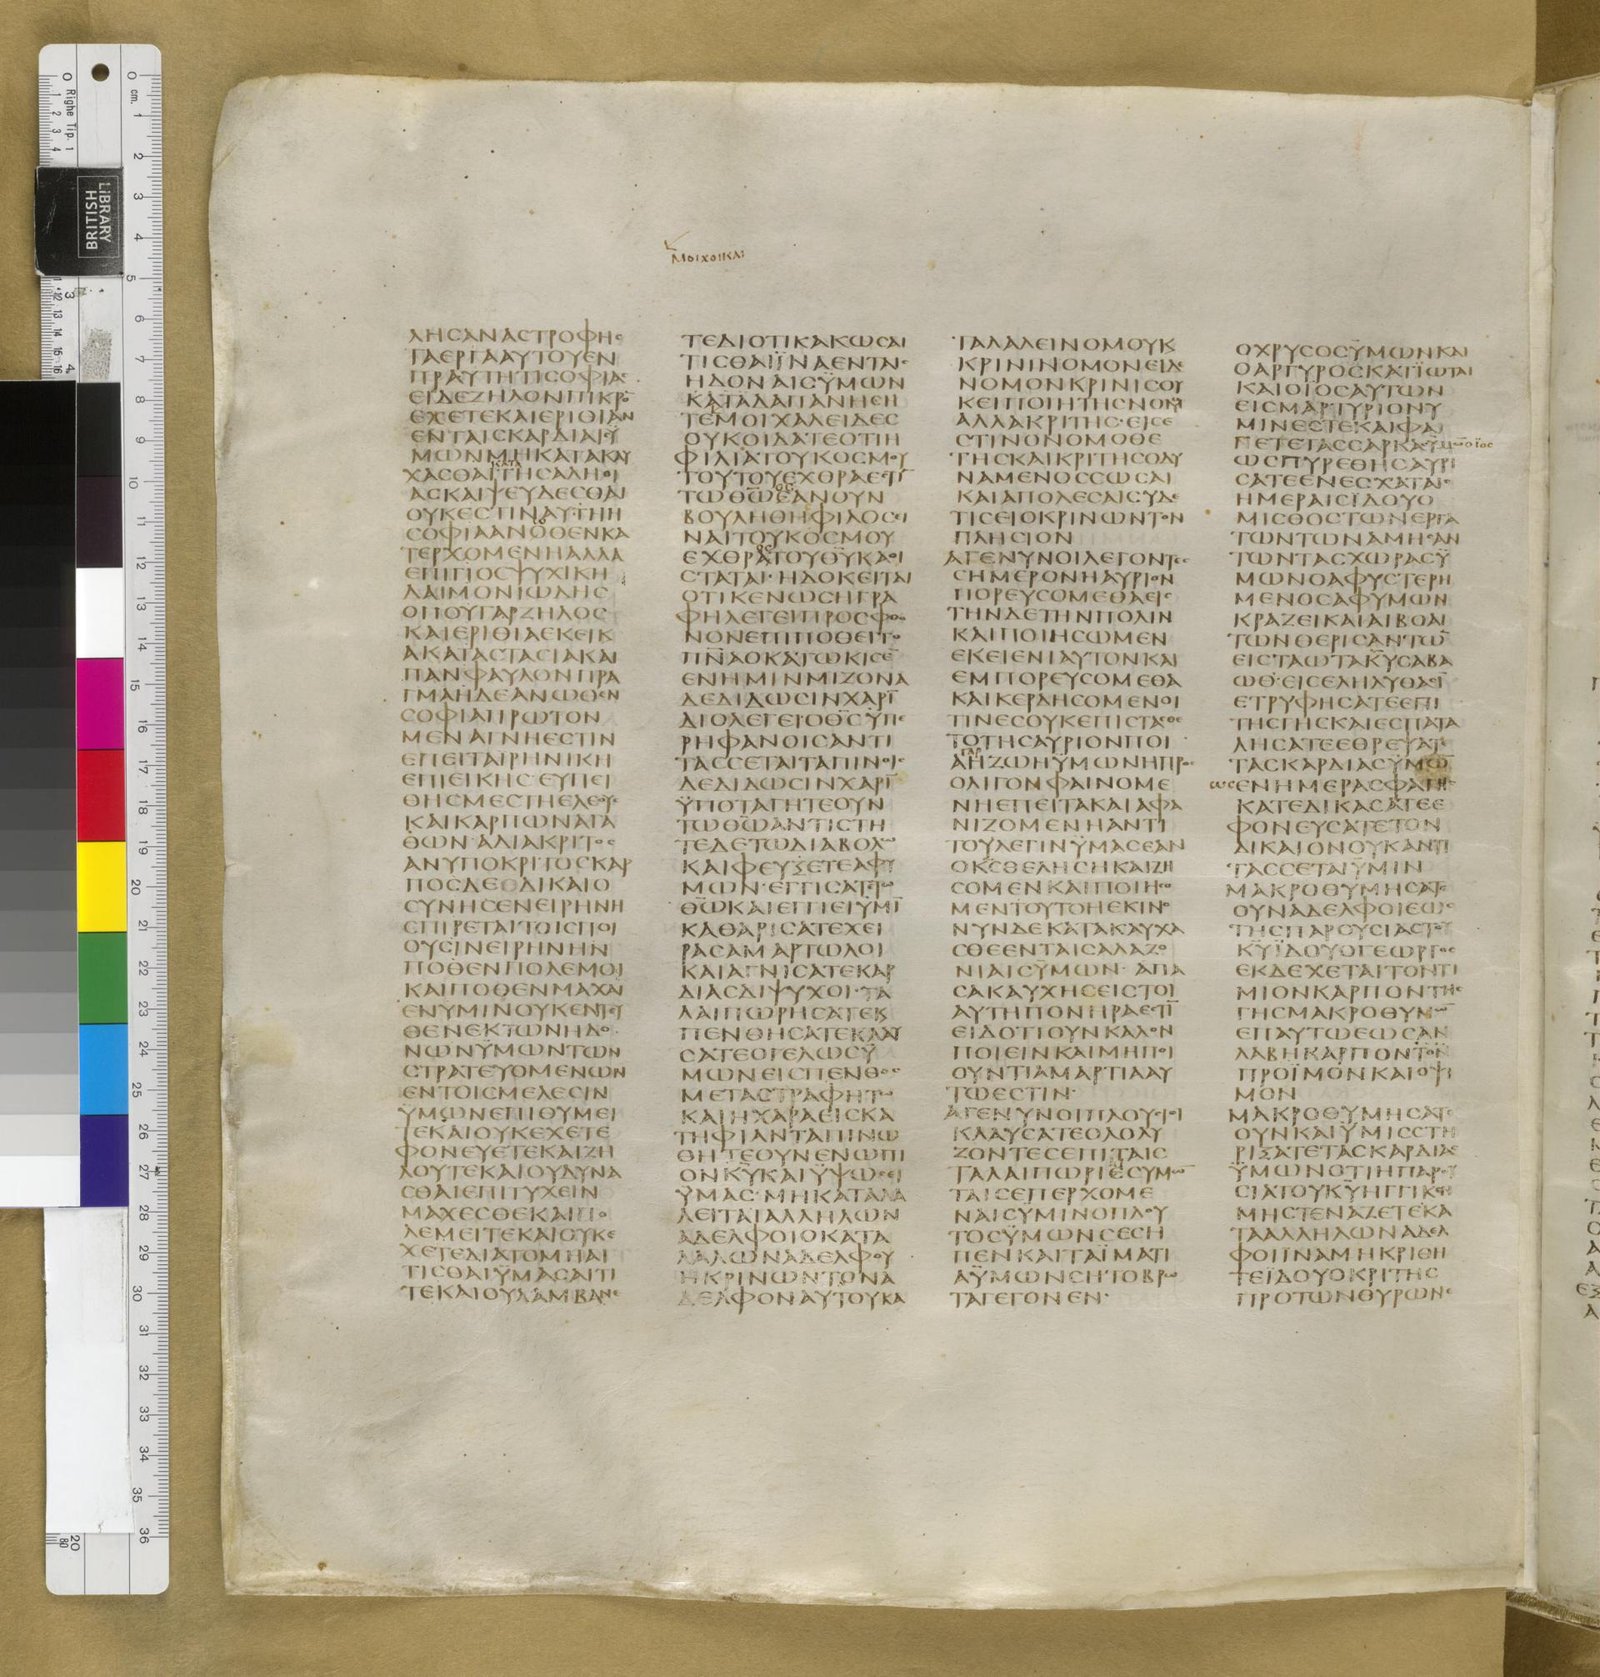 ΜΟΙΧΟΙΚΑΙ
ΛΗΣΑΝΑΣΤΡΟΦΗΣ
ΤΑΕΡΓΑΑΥΤΟΥΕΝ
ΠΡΑΥΤΗΤΙΣΟΦΙΑΣ
ΕΙΔΕΖΗΛΟΝΠΙΚΡΟ
ΕΧΕΤΕΚΑΙΕΡΙΘΙΑΝ
ΕΝΤΑΙΣΚΑΡΔΙΑΙΣΥ
ΜΩΝΜΗΚΑΤΑΚΑΥ
ΚΑΤΑ
ΧΑΣΘΑΙΤΗΣΑΛΗΘΙ
ΑΣΚΑΙΨΕΥΔΕΣΘΑΙ
ΟΥΚΕΣΤΙΝΑΥΤΗΗ
ΣΟΦΙΑΑΝΟΘΕΝΚΑ
ΤΕΡΧΟΜΕΝΗΑΛΛΑ
ΕΠΙΓΙΟΣΨΥΧΙΚΗ
ΔΑΙΜΟΝΙΩΔΗΣ
ΟΠΟΥΓΑΡΖΗΛΟΣ
ΚΑΙΕΡΙΘΙΑΕΚΕΙΚ
ΑΚΑΤΑΣΤΑΣΙΑΚΑΙ
ΠΑΝΦΑΥΛΟΝΠΡΑ
ΓΜΑΗΔΕΑΝΩΘΕΝ
ΣΟΦΙΑΠΡΩΤΟΝ
ΜΕΝΑΓΝΗΕΣΤΙΝ
ΕΠΕΙΤΑΙΡΗΝΙΚΗ
ΕΠΙΕΙΚΗΣ·ΕΥΠΕΙ
ΘΗΣΜΕΣΤΗΕΛΕΟΥΣ
ΚΑΙΚΑΡΠΩΝΑΓΑ
ΘΩΝ·ΑΔΙΑΚΡΙΤΟΣ
ΑΝΥΠΟΚΡΙΤΟΣΚΑΡ
ΠΟΣΔΕΟΔΙΚΑΙΟ
ΣΥΝΗΣΕΝΕΙΡΗΝΗ
ΣΠΙΡΕΤΑΙΤΟΙΣΠΟΙ
ΟΥΣΙΝΕΙΡΗΝΗΝ
ΠΟΘΕΝΠΟΛΕΜΟΙ
ΚΑΙΠΟΘΕΝΜΑΧΑΙ
ΕΝΥΜΙΝΟΥΚΕΝΤΕΥ
ΘΕΝΕΚΤΩΝΗΔΟ
ΝΩΝΫΜΩΝΤΩΝ
ΣΤΡΑΤΕΥΟΜΕΝΩΝ
ΕΝΤΟΙΣΜΕΛΕΣΙΝ
ΫΜΩΝΕΠΙΘΥΜΕΙ
ΤΕΚΑΙΟΥΚΕΧΕΤΕ
ΦΟΝΕΥΕΤΕΚΑΙΖΗ
ΛΟΥΤΕΚΑΙΟΥΔΥΝΑ
ΣΘΑΙΕΠΙΤΥΧΕΙΝ
ΜΑΧΕΣΘΕΚΑΙΠΟ
ΛΕΜΕΙΤΕΚΑΙΟΥΚΕ
ΧΕΤΕΔΙΑΤΟΜΗΑΙ
ΤΙΣΘΑΙΫΜΑΣΑΙΤΙ
ΤΕΚΑΙΟΥΛΑΜΒΑΝΕ
ΤΕΔΙΟΤΙΚΑΚΩΣΑΙ
ΤΙΣΘΑΙΪΝΑΕΝΤΑΙΣ
ΗΔΟΝΑΙΣΫΜΩΝ
ΚΑΤΑΔΑΠΑΝΗΣΗ
ΤΕΜΟΙΧΑΛΕΙΔΕΣ
ΟΥΚΟΙΔΑΤΕΟΤΙΗ
ΦΙΛΙΑΤΟΥΚΟΣΜΟΥ
ΤΟΥΤΟΥΕΧΘΡΑΕΣΤΙ
ΤΩΘΩΕΑΝΟΥΝ
ΒΟΥΛΗΘΗΦΙΛΟΣΕΙ
ΝΑΙΤΟΥΚΟΣΜΟΥ
ΕΧΘΡΑΤΟΥΘΥΚΑΘΙ
ΣΤΑΤΑΙ·ΗΔΟΚΕΙΤΑΙ
ΟΤΙΚΕΝΩΣΗΓΡΑ
ΦΗΛΕΓΕΙΠΡΟΣΦΘΟ
ΝΟΝΕΠΙΠΟΘΕΙΤΟ
ΠΝΑΟΚΑΤΩΚΙΣΕ
ΕΝΗΜΙΝΜΙΖΟΝΑ
ΔΕΔΙΔΩΣΙΝΧΑΡΙ
ΔΙΟΛΕΓΕΙΟΘΣΫΠΕ
ΡΗΦΑΝΟΙΣΑΝΤΙ
ΤΑΣΣΕΤΑΙΤΑΠΙΝΟΙΣ
ΔΕΔΙΔΩΣΙΝΧΑΡΙ
ΫΠΟΤΑΓΗΤΕΟΥΝ
ΤΩΘΩΑΝΤΙΣΤΗ
ΤΕΔΕΤΩΔΙΑΒΟΛΩ
ΚΑΙΦΕΥΞΕΤΕΑΦΫ
ΜΩΝ·ΕΓΓΙΣΑΤΕΤΩ
ΘΩΚΑΙΕΓΓΙΕΙΥΜΙ
ΚΑΘΑΡΙΣΑΤΕΧΕΙ
ΡΑΣΑΜΑΡΤΩΛΟΙ
ΚΑΙΑΓΝΙΣΑΤΕΚΑΡ
ΔΙΑΣΔΙΨΥΧΟΙ·ΤΑ
ΛΑΙΠΩΡΗΣΑΤΕΚ
ΠΕΝΘΗΣΑΤΕΚΛΑΥ
ΣΑΤΕΟΓΕΛΩΣΫ
ΜΩΝΕΙΣΠΕΝΘΟΣ
ΜΕΤΑΣΤΡΑΦΗΤΩ
ΚΑΙΗΧΑΡΑΕΙΣΚΑ
ΤΗΦΙΑΝΤΑΠΙΝΩ
ΘΗΤΕΟΥΝΕΝΩΠΙ
ΟΝΚΥΚΑΙΫΨΩΣΕΙ
ΫΜΑΣ·ΜΗΚΑΤΑΛΑ
ΛΕΙΤΑΙΑΛΛΗΛΩΝ
ΑΔΕΛΦΟΙΟΚΑΤΑ
ΛΑΛΩΝΑΔΕΛΦΟΥ
ΗΚΡΙΝΩΝΤΟΝΑ
ΔΕΛΦΟΝΑΥΤΟΥΚΑ
ΤΑΛΑΛΕΙΝΟΜΟΥΚ
ΚΡΙΝΙΝΟΜΟΝΕΙΔΕ
ΝΟΜΟΝΚΡΙΝΙΣΟΥ
ΚΕΙΠΟΙΗΤΗΣΝΟΜΟΥ
ΑΛΛΑΚΡΙΤΗΣ·ΕΙΣΕ
ΣΤΙΝΟΝΟΜΟΘΕ
ΤΗΣΚΑΙΚΡΙΤΗΣΟΔΥ
ΝΑΜΕΝΟΣΣΩΣΑΙ
ΚΑΙΑΠΟΛΕΣΑΙΣΥΔΕ
ΤΙΣΕΙΟΚΡΙΝΩΝΤΟΝ
ΠΛΗΣΙΟΝ
ΑΓΕΝΥΝΟΙΛΕΓΟΝΤΕΣ
ΣΗΜΕΡΟΝΗΑΥΡΙΟΝ
ΠΟΡΕΥΣΟΜΕΘΑΕΙΣ
ΤΗΝΔΕΤΗΝΠΟΛΙΝ
ΚΑΙΠΟΙΗΣΩΜΕΝ
ΕΚΕΙΕΝΙΑΥΤΟΝΚΑΙ
ΕΜΠΟΡΕΥΣΟΜΕΘΑ
ΚΑΙΚΕΡΔΗΣΟΜΕΝΟΙ
ΤΙΝΕΣΟΥΚΕΠΙΣΤΑΣΘΕ
ΤΟΤΗΣΑΥΡΙΟΝΠΟΙ
ΓΑΡ
ΑΗΖΩΗΫΜΩΝΗΠΡΟΣ
ΟΛΙΓΟΝΦΑΙΝΟΜΕ
ΝΗΕΠΕΙΤΑΚΑΙΑΦΑ
ΝΙΖΟΜΕΝΗΑΝΤΙ
ΤΟΥΛΕΓΙΝΫΜΑΣΕΑΝ
ΟΚΣΘΕΛΗΣΗΚΑΙΖΗ
ΣΟΜΕΝΚΑΙΠΟΙΗΣΟ
ΜΕΝΤΟΥΤΟΗΕΚΙΝΟ
ΝΥΝΔΕΚΑΤΑΚΑΥΧΑ
ΣΘΕΕΝΤΑΙΣΑΛΑΖΟ
ΝΙΑΙΣΫΜΩΝ·ΑΠΑ
ΣΑΚΑΥΧΗΣΕΙΣΤΟΙ
ΑΥΤΗΠΟΝΗΡΑΕΣΤΙ
ΕΙΔΟΤΙΟΥΝΚΑΛΟΝ
ΠΟΙΕΙΝΚΑΙΜΗΠΟΙ
ΟΥΝΤΙΑΜΑΡΤΙΑΑΥ
ΤΩΕΣΤΙΝ·
ΑΓΕΝΥΝΟΙΠΛΟΥΣΙΟΙ
ΚΛΑΥΣΑΤΕΟΛΟΛΥ
ΖΟΝΤΕΣΕΠΙΤΑΙΣ
ΤΑΛΑΙΠΩΡΙΕΣΥΜΩ
ΤΑΙΣΕΠΕΡΧΟΜΕ
ΝΑΙΣΥΜΙΝΟΠΛΟΥ
ΤΟΣΫΜΩΝΣΕΣΗ
ΠΕΝΚΑΙΤΑΪΜΑΤΙ
ΑΫΜΩΝΣΗΤΟΒΡΩ
ΤΑΓΕΓΟΝΕΝ·
ΟΧΡΥΣΟΣΫΜΩΝΚΑΙ
ΟΑΡΓΥΡΟΣΚΑΤΙΩΤΑΙ
ΚΑΙΟΪΟΣΑΥΤΩΝ
ΕΙΣΜΑΡΤΥΡΙΟΝΥ
ΜΙΝΕΣΤΕΚΑΙΦΑ
ΠΕΤΕΤΑΣΣΑΡΚΑΣΫΜΩΟΪΟΣ
ΩΣΠΥΡΕΘΗΣΑΥΡΙ
ΣΑΤΕΕΝΕΣΧΑΤΑΙΣ
ΗΜΕΡΑΙΣΪΔΟΥΟ
ΜΙΣΘΟΣΤΩΝΕΡΓΑ
ΤΩΝΤΩΝΑΜΗΣΑΝ
ΤΩΝΤΑΣΧΩΡΑΣΫ
ΜΩΝΟΑΦΥΣΤΕΡΗ
ΜΕΝΟΣΑΦΥΜΩΝ
ΚΡΑΖΕΙΚΑΙΑΙΒΟΑΙ
ΤΩΝΘΕΡΙΣΑΝΤΩ
ΕΙΣΤΑΩΤΑΚΥΣΑΒΑ
ΩΘ·ΕΙΣΕΛΗΛΥΘΑΣΙ
ΕΤΡΥΦΗΣΑΤΕΕΠΙ
ΤΗΣΓΗΣΚΑΙΕΣΠΑΤΑ
ΛΗΣΑΤΕΕΘΡΕΨΑΤΕ
ΤΑΣΚΑΡΔΙΑΣΫΜΩ
ωςΕΝΗΜΕΡΑΣΦΑΓΗΣ
ΚΑΤΕΔΙΚΑΣΑΤΕΕ
ΦΟΝΕΥΣΑΤΕΤΟΝ
ΔΙΚΑΙΟΝΟΥΚΑΝΤΙ
ΤΑΣΣΕΤΑΙΫΜΙΝ
ΜΑΚΡΟΘΥΜΗΣΑΤΕ
ΟΥΝΑΔΕΛΦΟΙΕΩΣ
ΤΗΣΠΑΡΟΥΣΙΑΣΤΟΥ
ΚΥΪΔΟΥΟΓΕΩΡΓΟΣ
ΕΚΔΕΧΕΤΑΙΤΟΝΤΙ
ΜΙΟΝΚΑΡΠΟΝΤΗΣ
ΓΗΣΜΑΚΡΟΘΥΜΩ
ΕΠΑΥΤΩΕΩΣΑΝ
ΛΑΒΗΚΑΡΠΟΝΤΟΝ
ΠΡΟΪΜΟΝΚΑΙΟΨΙ
ΜΟΝ
ΜΑΚΡΟΘΥΜΗΣΑΤΕ
ΟΥΝΚΑΙΫΜΙΣΣΤΗ
ΡΙΞΑΤΕΤΑΣΚΑΡΔΙΑΣ
ΫΜΩΝΟΤΙΗΠΑΡΟΥ
ΣΙΑΤΟΥΚΥΗΓΓΙΚΕΝ
ΜΗΣΤΕΝΑΖΕΤΕΚΑ
ΤΑΑΛΛΗΛΩΝΑΔΕΛ
ΦΟΙΪΝΑΜΗΚΡΙΘΗ
ΤΕΪΔΟΥΟΚΡΙΤΗΣ
ΠΡΟΤΩΝΘΥΡΩΝΕ
BRITISH
LIBRARY